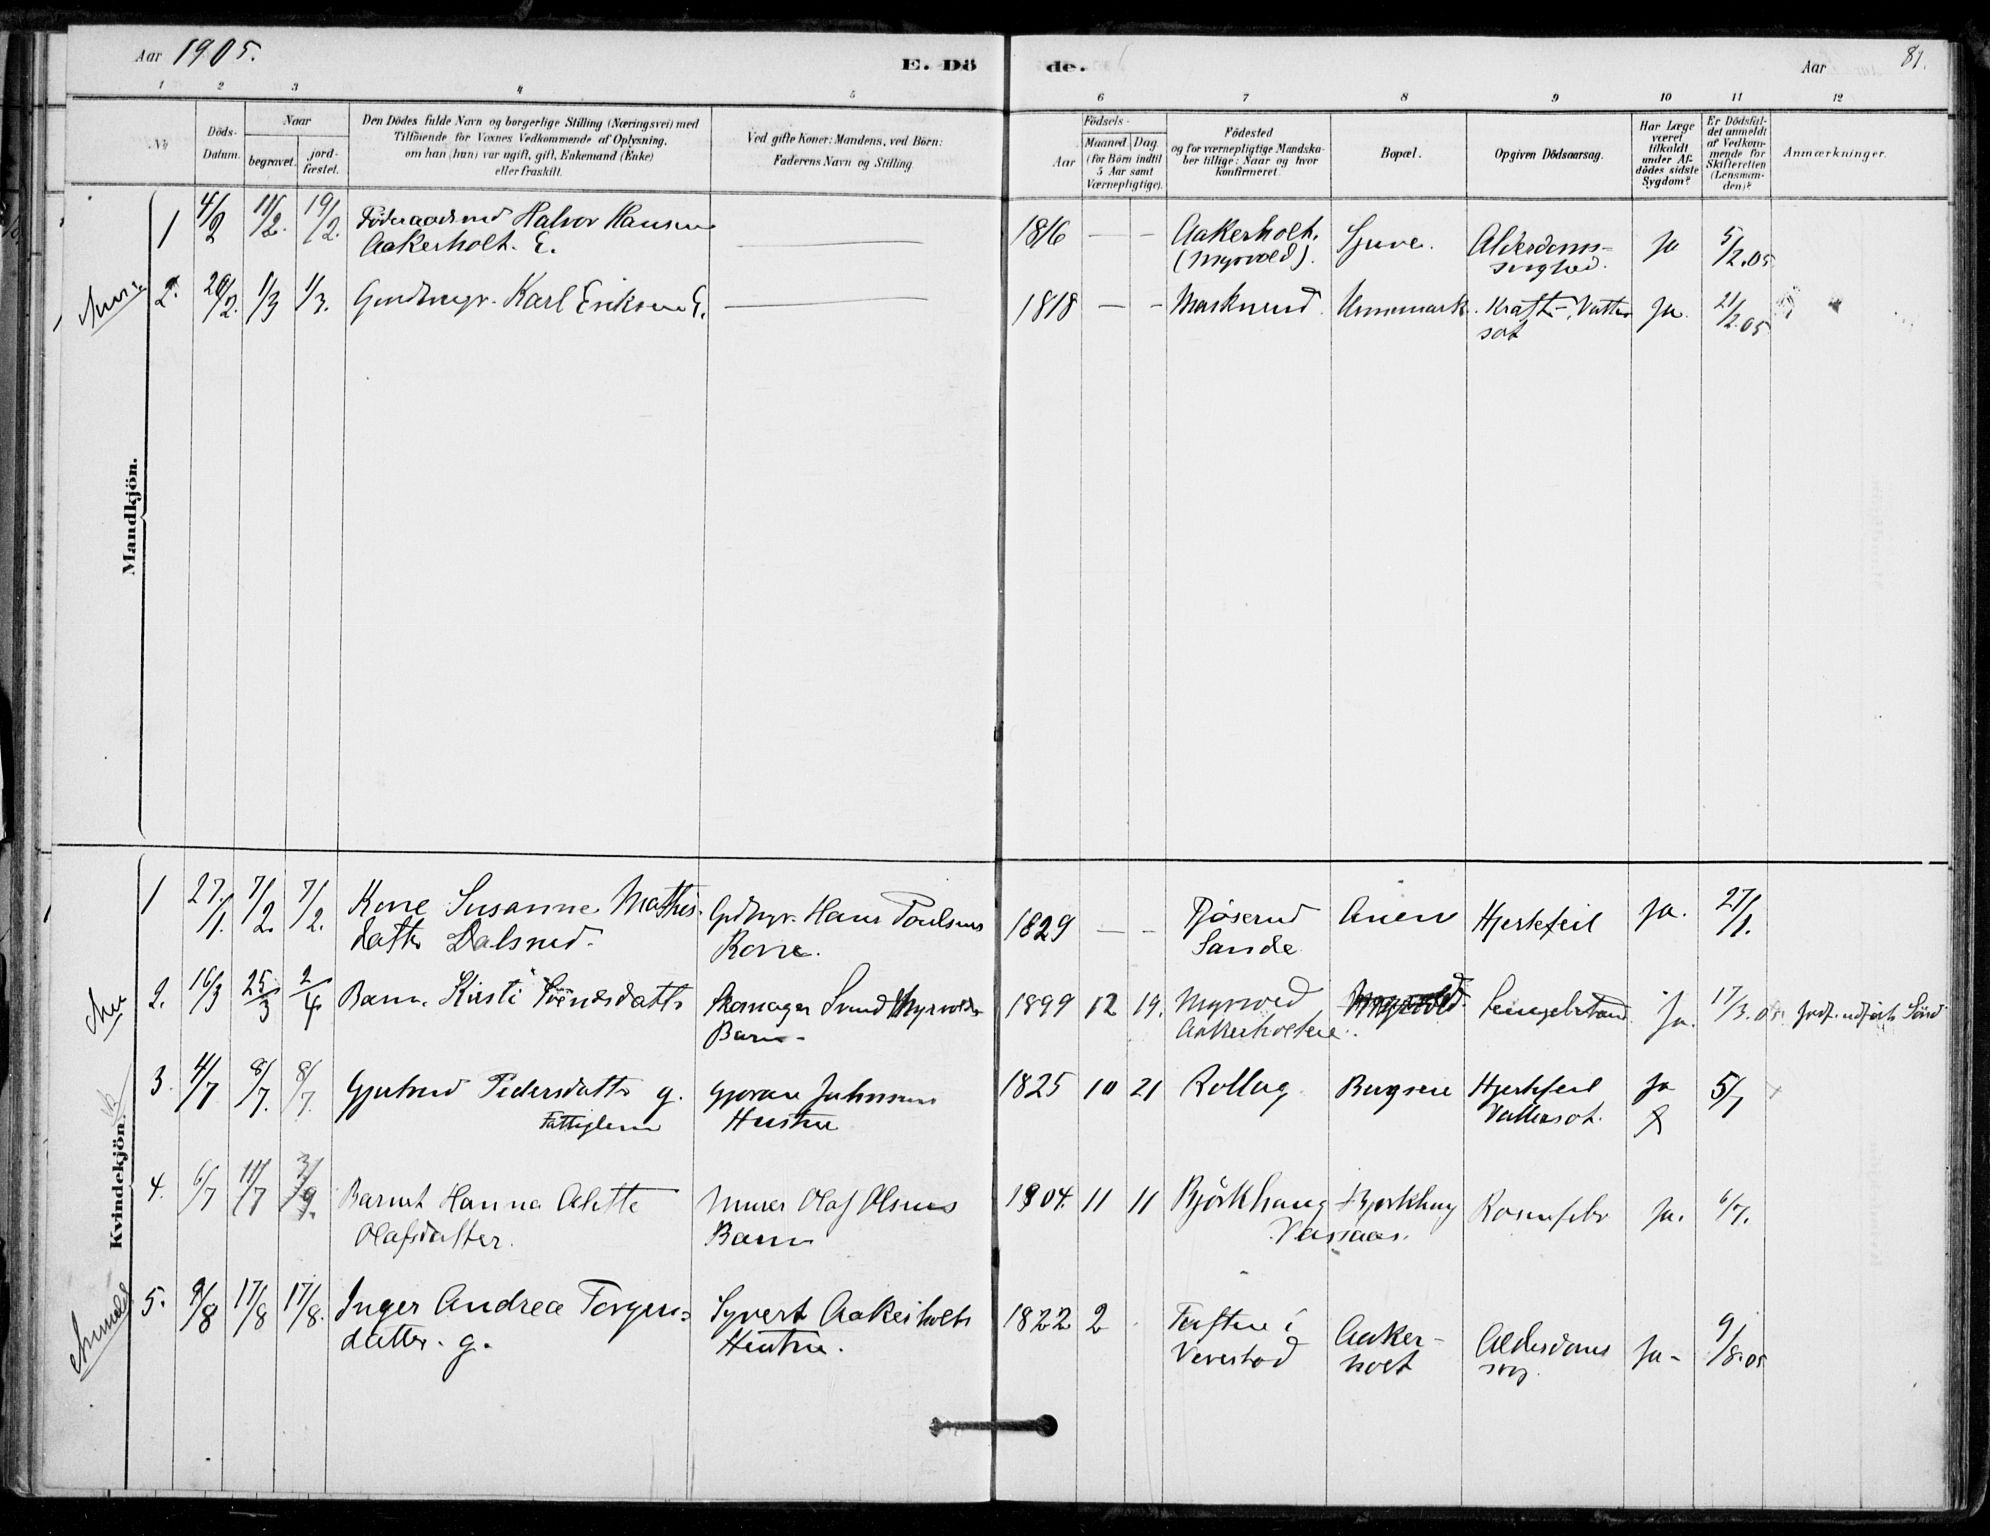 Aar 1905.
E. Dö
de.
Aar
81.
1
2
3
4
5
6
7
8
9
10
11
12
No
Döds-
Datum.
Naar
begravet.
jord-
fæstet.
Den Dödes fulde Navn og borgerlige Stilling (Næringsvei) med
Tilföiende, for Voxnes Vedkommende af Oplysning,
om han (hun) var ugift, gift, Enkemand (Enke)
eller fraskilt.
Ved gifte Koner: Mandens, ved Börn:
Faderens Navn og Stilling.
Födsels-
Aar
Maaned.
Dag.
(for Börn indtil
5 Aar samt
Værnepligtige).
Födested
og for værnepligtige Mandska-
ber tillige: Naar og hvor
konfirmeret.
Bopæl.
Opgiven Dödsaarsag.
Har Læge
været
tilkaldt
under Af-
dödes sidste
Sygdom?
Er Dödsfal-
det anmeldt
af Vedkom-
mende for
Skifteretten
(Lensman-
den)?
Anmærkninger.
Mandkjön.
1 4/2 11/2. 19/2. Föderaadsmd Halvor Hansen
Aakerholt. E.
1816 — — Aakerholt. Sjuve. Alderdoms- Ja 5/2.05
(Myrvold).
2. 20/2. 1/3 1/3. Gaardbrugr. Karl Eriksen E.
1818 — — Masknud. Unnemark. Kraft-, Vatter Ja. 21/2.05
sot
Kvindekjön.
1 27./1. 7/2. 7/2. Kone Susanne Mathis-
datter Dalsrud.
Gdbrgr. Hans Poulsens
Kone.
1829 — — Tjöserud Auen Hjertefeil Ja. 27/1.
Sande
2. 16/3 25/3 2/4 Barn. Kirsti Svendsdatter
Skomager Svend Myrvolds
Barn.
1899 12 19. Myrvold Myrvold Ja. 17/3.05.
Aakerholteie.
3. 4/7 8/7. 8/7. Gjertrud Pedersdatter g.
Fattiglem
Johnsens
Hustru
1825 10 21 Rollag Bergseie Hjertefeil Ja 5/7
Vattersot.
4. 6/7 11/7 3/9. Barnet Hanna Alette
Olafsdatter.
Murer Olaf Olsens
Barn
1904. 11 11 Björkhaug Bjorkhug Rosenfeber Ja. 6/7.
Vassaas.
5. 9/8 17/8 17/8. Inger Andrea Torgers-
datter. g.
Syvert Aakerholts
Hustru.
1822 2 Tuftu i Aaker- Alderdoms Ja- 9/8.05
holt